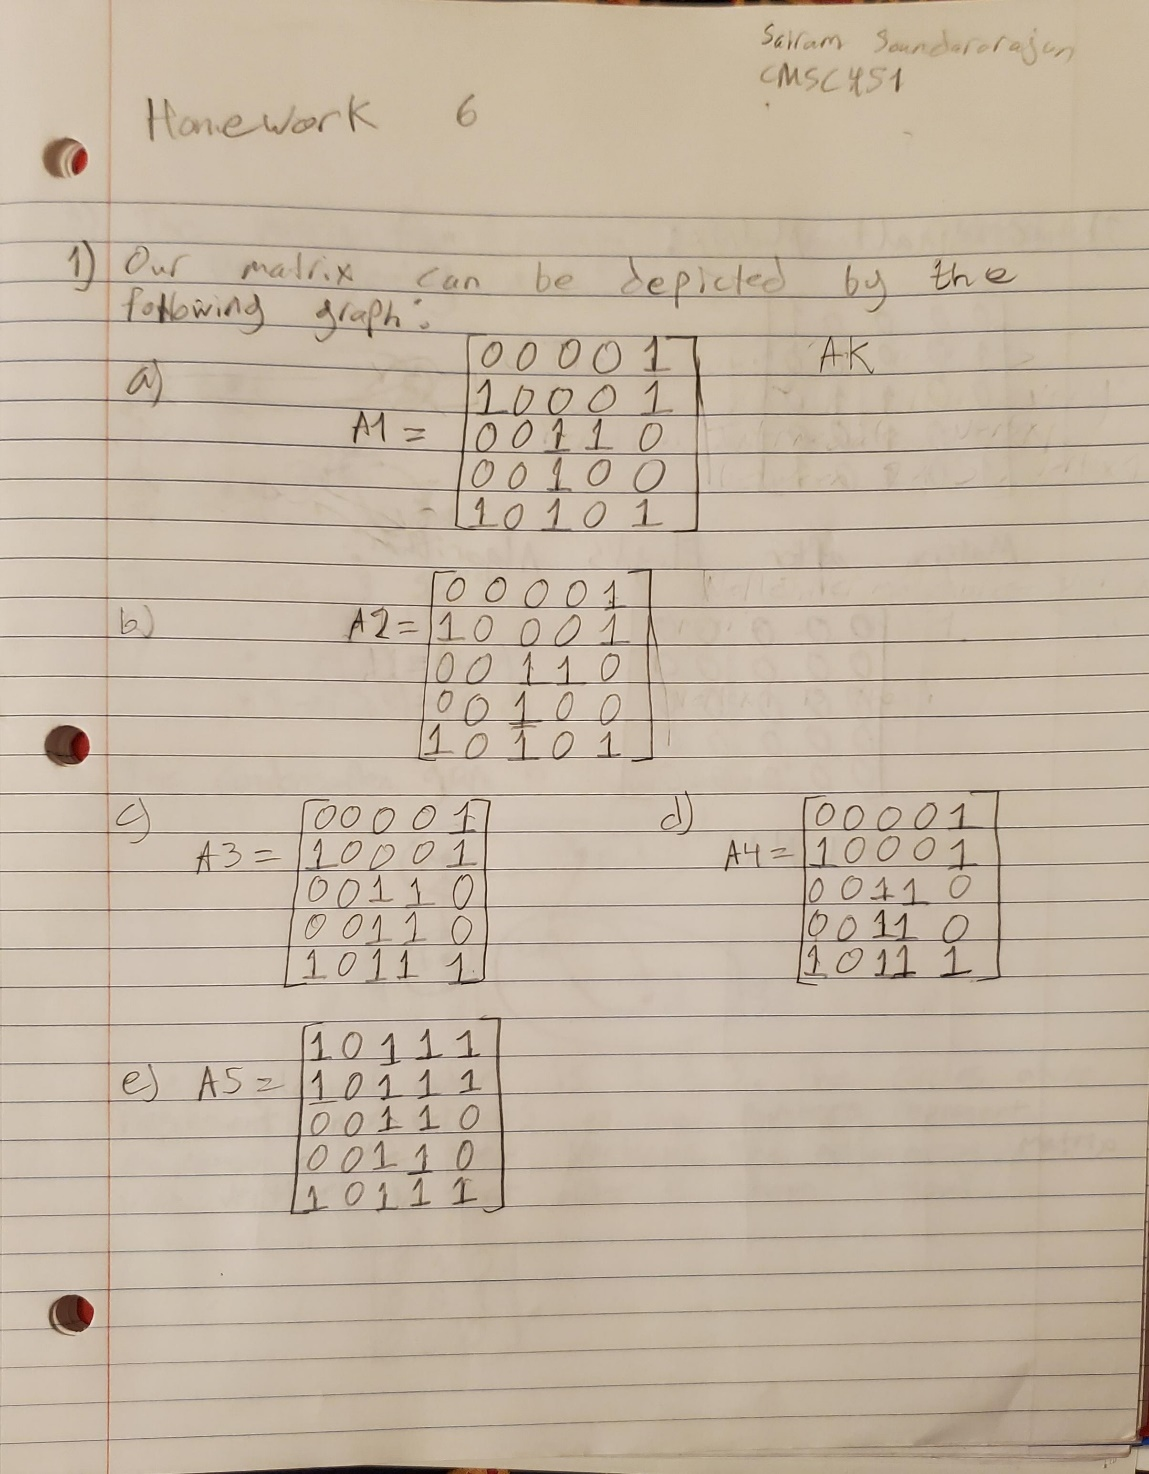 Sairam Soundararajan
CMSC451
Homework 6
1) Our matrix can be depicted by the
following graph:
a)
A1 =
0 0 0 0 1
1 0 0 0 1
0 0 1 1 0
0 0 1 0 0
1 0 1 0 1
AK
b)
A2 =
0 0 0 0 1
1 0 0 0 1
0 0 1 1 0
0 0 1 0 0
1 0 1 0 1
c)
A3 =
0 0 0 0 1
1 0 0 0 1
0 0 1 1 0
0 0 1 1 0
1 0 1 1 1
d)
A4 =
0 0 0 0 1
1 0 0 0 1
0 0 1 1 0
0 0 1 1 0
1 0 1 1 1
e) A5 =
1 0 1 1 1
1 0 1 1 1
0 0 1 1 0
0 0 1 1 0
1 0 1 1 1